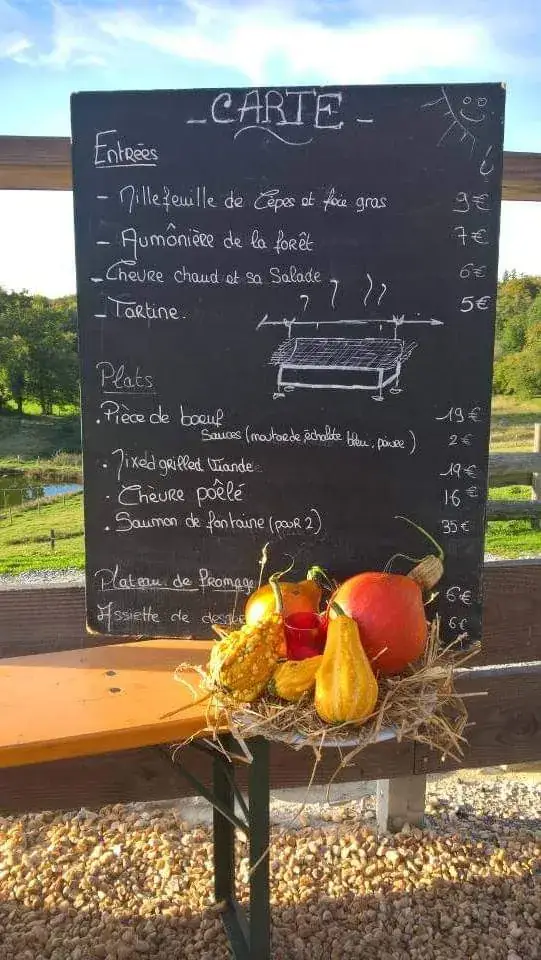 - CARTE -
Entrées
- Millefeuille de Cèpes et foie gras 9€
- Aumônière de la forêt 7€
- Chèvre chaud et sa Salade 6€
- Tartine. 5€
Plats
. Pièce de boeuf 19€
Sauces (moutarde, échalote bleu, poivre) 2€
. Mixed grilled Viande 19€
. Chèvre poêlé 16€
. Saumon de fontaine (pour 2) 35€
Plateau de fromage 6€
Assiette de 6€